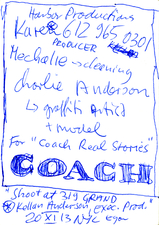 Harbor Productions
Kare 612 965 0301
PRODUCER
Mechalle → cleaning
Charlie Anderson
↳ graffiti Artist
+ model
For "Coach Real Stories"
COACH
"Shoot at 319 GRAND
Kellan Anderson, exec. Prod."
20 XI 13 NYC